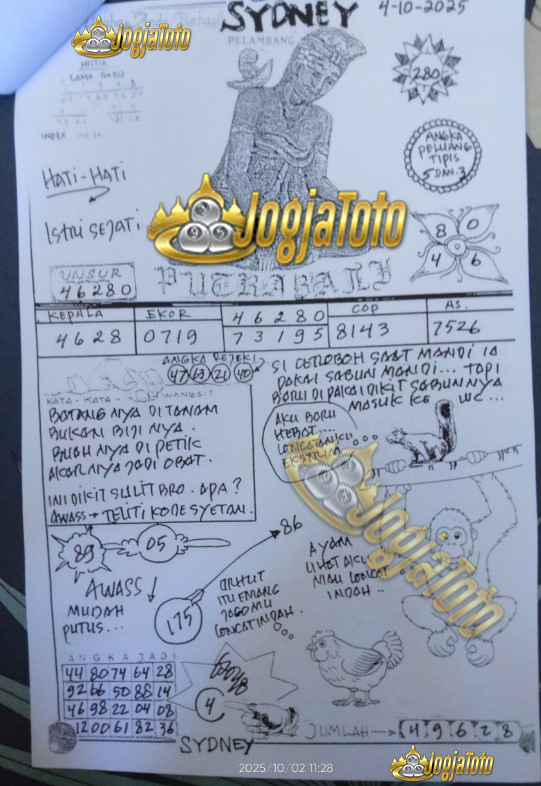 JogjaToto
SYDNEY
4-10-2025
PELAMBANG
MISTIK
LAMA BARU
INDEX
280
ANGKA
PELUANG
TIPIS
5 DAN 3
HATI-HATI
ISTRI SEJATI
JogjaToto
8 0
4 6
UNSUR
46280
PUTRA BALI
KEPALA EKOR 46280 COP AS.
4628 0719 73195 8143 7526
ANGKA REJEKI
47 63 21 40
SI CEROBOH SAAT MANDI IA
PAKAI SABUN MANDI... TAPI
BARU DI PAKAI DIKIT SABUNNYA
MASUK KE WC...
KATA - KATA - WANGSIT
BATANG NYA DI TANAM
BUKAN BIJI NYA.
BUAH NYA DI PETIK
AKARNYA JADI OBAT.
INI DIKIT SULIT BRO. APA?
AWASS → TELITI KODE SYETAN.
AKU BARU
HEBAT....
LONCATANKU
JogjaToto
89
05
86
175
AWASS
MUDAH
PUTUS...
ITU EMANG
JAGO MU
LONCAT INDAH.
AYAM
LIHAT AKU
MAU LONCAT
INDAH..
ANGKA JADI
44 80 74 64 28
92 66 50 88 14
46 98 22 04 08
12 00 61 82 36
4
SYDNEY
JUMLAH → 49628
2025/10/02 11:28
JogjaToto